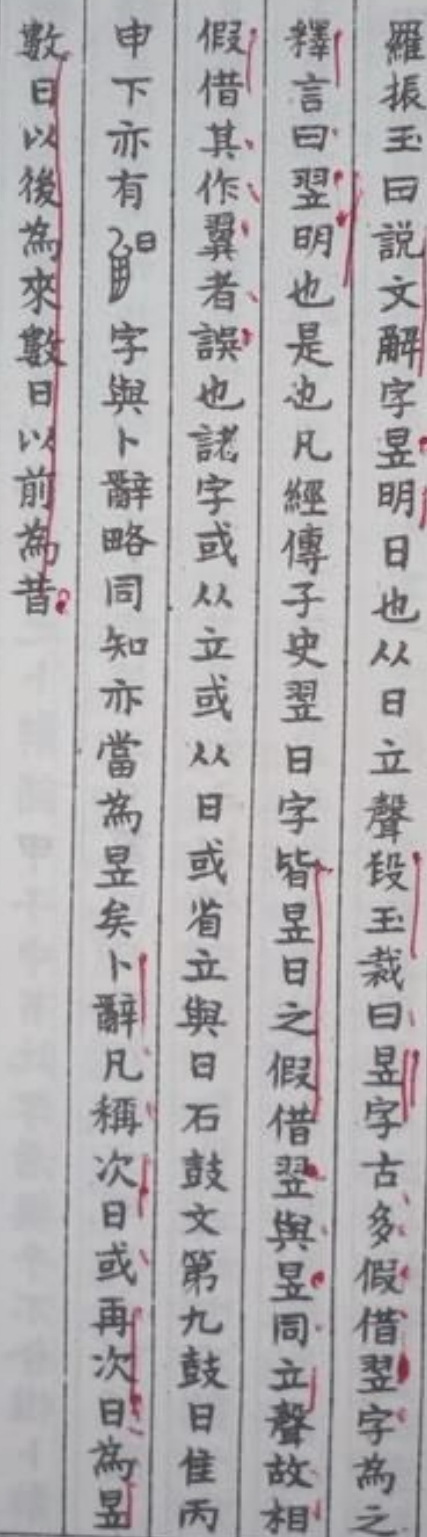 羅振玉曰説文解字昱明日也从日立聲段玉裁曰昱字古多假借翌字為之
釋言曰翌明也是也凡經傳子史翌日字皆昱日之假借翌與昱同立聲故相
假借其作翼者誤也諸字或从立或从日或省立與日石鼓文第九鼓日隹丙
申下亦有字與卜辭略同知亦當為昱矣卜辭凡稱次日或再次日為昱
數日以後為來數日以前為昔